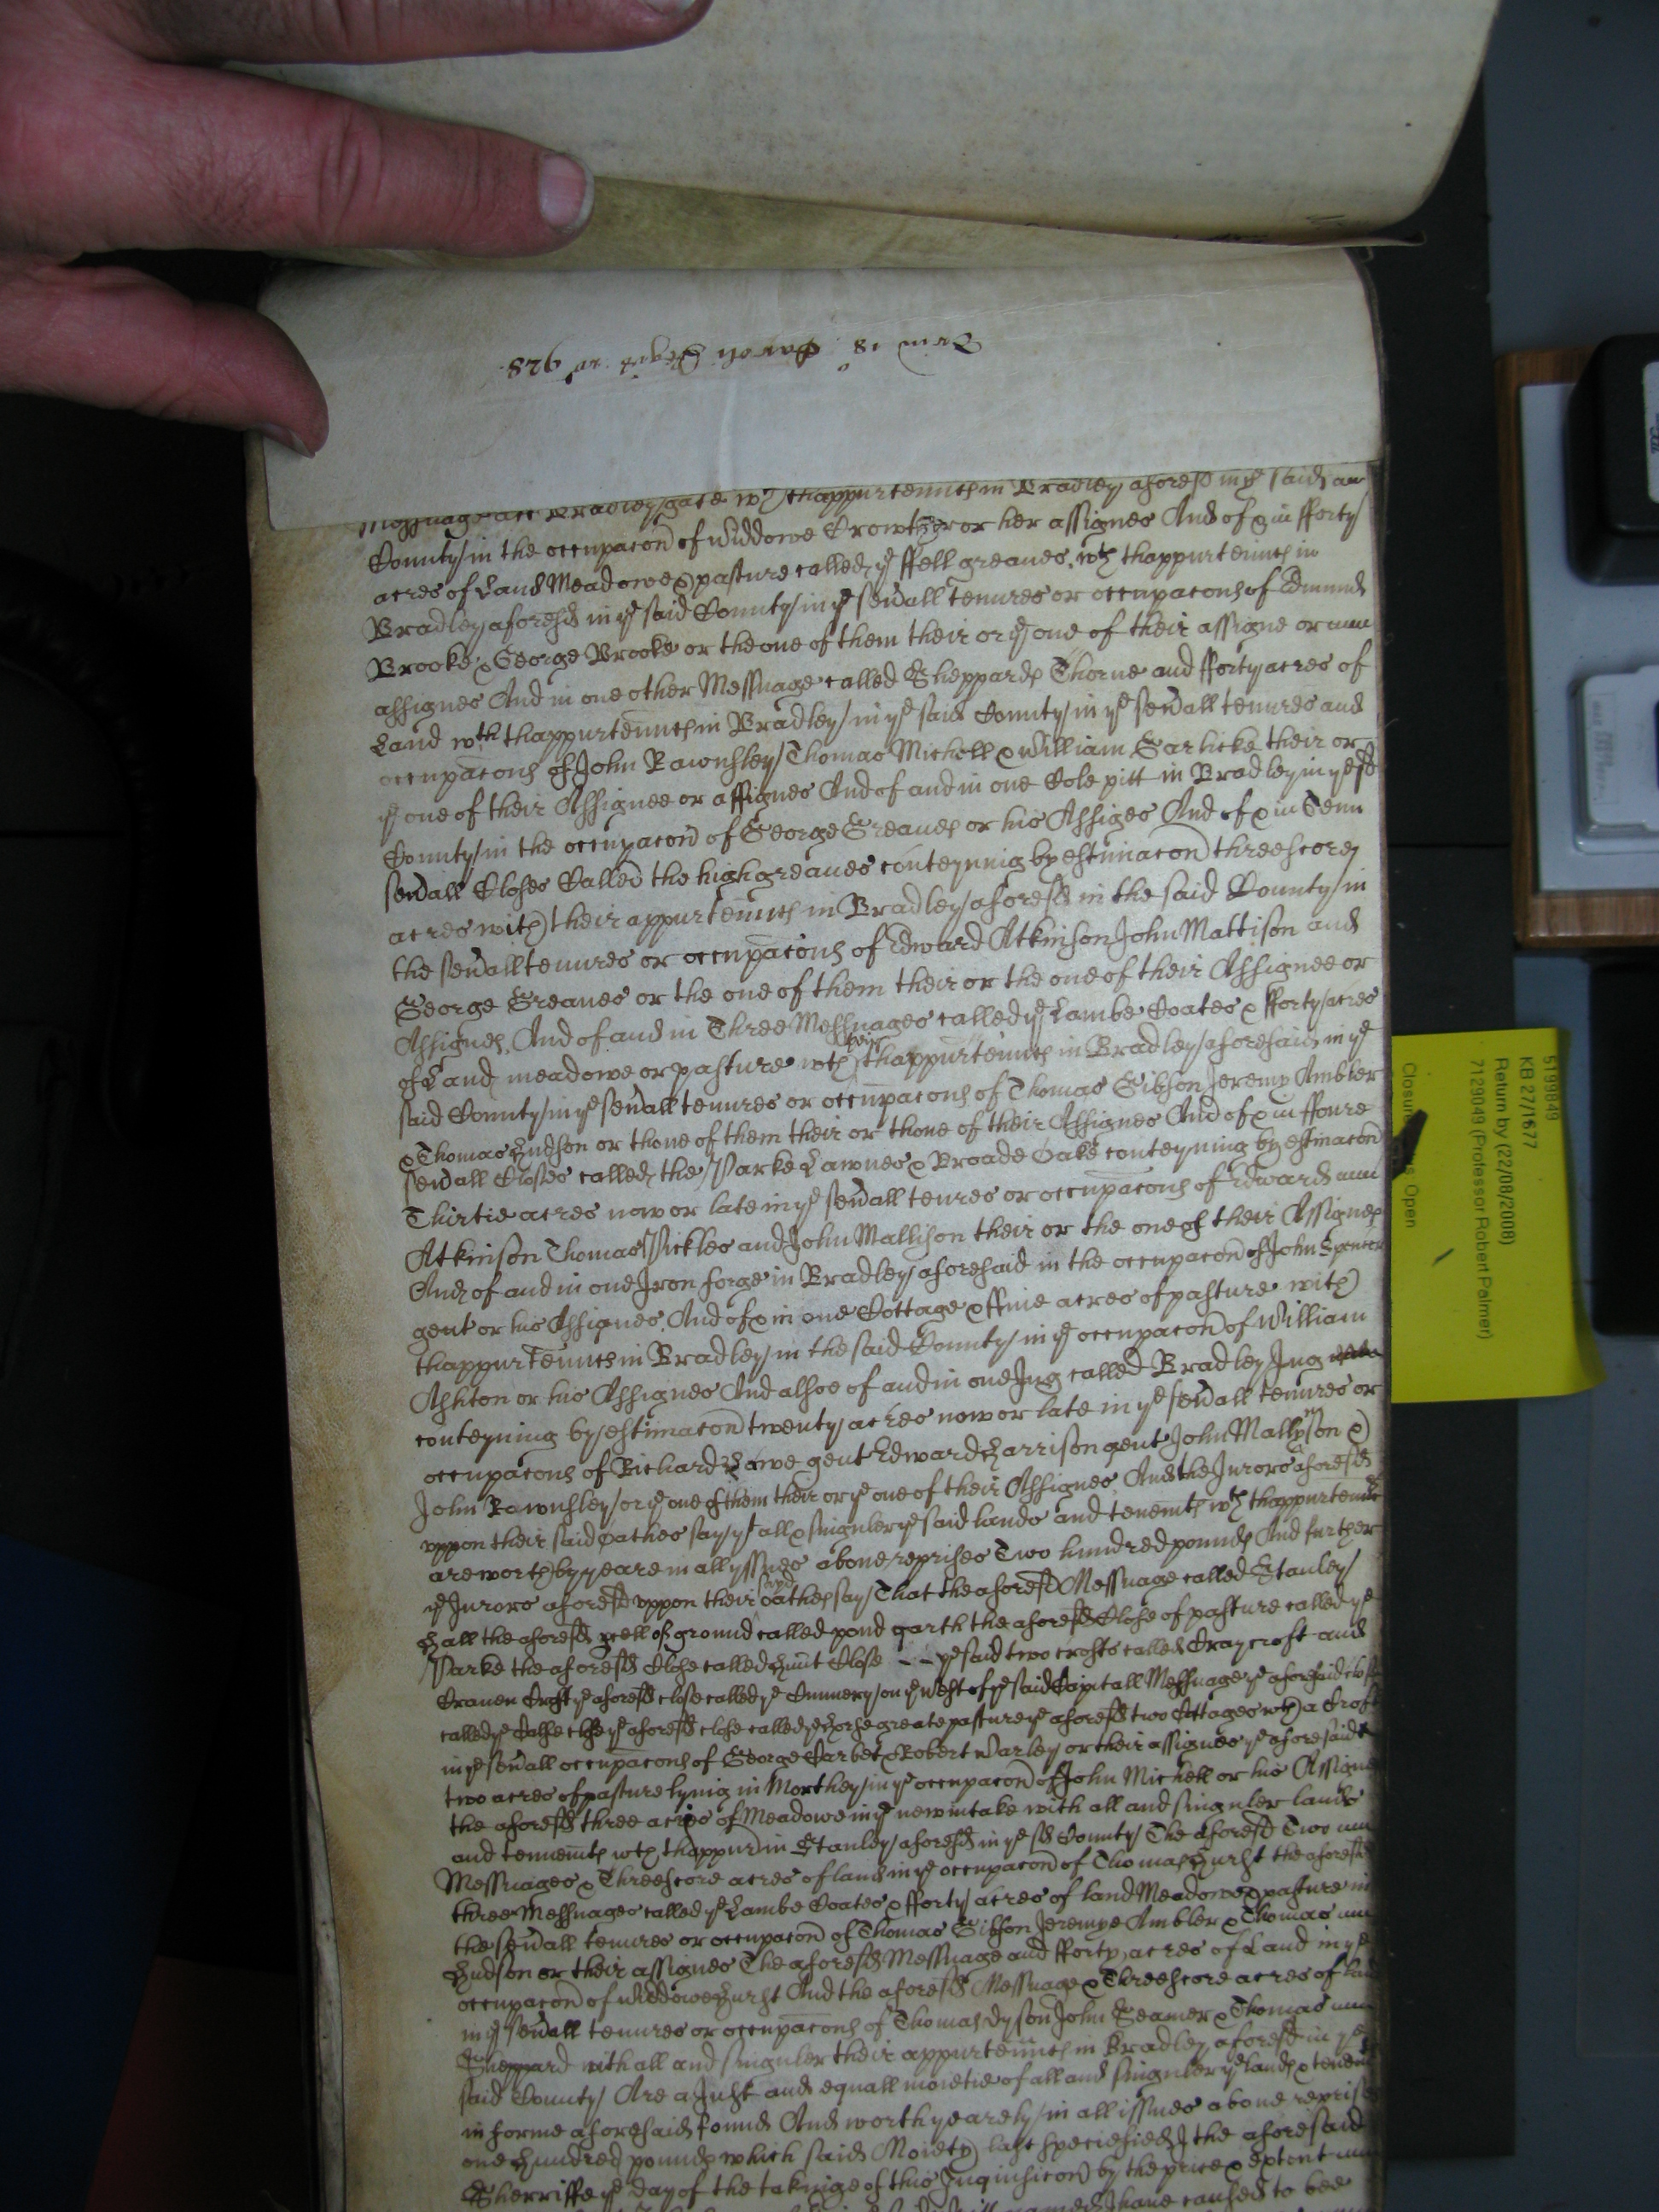 Trin 18 Car. R. Regis ro 928.
Messuage att Bradley gate wth thappurtenncs in Bradley aforesd in ye said
County in the occupacon of Widdowe Crowther or her assignes And of & in fforty
acres of Land Meadowe & pasture called ye ffell greaves wth thappurtenncs in
Bradley aforesd in ye said County in ye sevall tenures or occupacons of Edmund
Brooke & George Brooke or the one of them their or ye one of their assigne or
assignes And in one other Messuage called Shepphards Thorne and fforty acres of
Land wth thappurtenncs in Bradley in ye said County in ye sevall tenures and
occupacons of John Rawnsley Thomas Michell & William Garlicke their or
ye one of their Assignee or assignes And of and in one Cole pitt in Bradley in ye sd
County in the occupacon of George Greaves or his Assiges And of & in Tenn
sevall Closes Called the high greaves conteynnig by estimacon threescore
acres with their appurtenncs in Bradley aforesd in the said County in
the sevall tenures or occupacons of Edward Atkinson John Mattison and
George Greaves or the one of them their or the one of their Assignee or
Assignes. And of and in Three Messuages called ye Lambe Coates & fforty acres
of Land meadowe or pasture wth thappurtenncs in Bradley aforesaid in ye
said County in ye sevall tenures or occupacons of Thomas Gibson Jeremy Ambler
& Thomas Hudson or thone of them their or thone of their Assignes And of & in ffoure
sevall Closes called the Parke Lawnes & Broade Oake conteyning by estimacon
Thirtie acres now or late in ye sevall tenures or occupacons of Edward
Atkinson Thomas Pickles and John Mallison their or the one of their Assignes
And of and in one Iron forge in Bradley aforesaid in the occupacon of John Spencer
gent or his Assignes. And of & in one Cottage & ffive acres of pasture with
thappurtenncs in Bradley in the said County in ye occupacon of William
Ashton or his Assignes And alsoe of and in one Ing called Bradley Ing
conteyning by estimacon twenty acres now or late in ye sevall tenures or
occupacons of Richard Hawe gent Edward Harrison gent John Mallynson &
John Rawnsley or ye one of them their or ye one of their Assignes. And the Jurors aforesd
uppon their said oathes say yt all & singuler ye said lands and tenemts wth thappurtenncs
are worth by yeare in all yssues above reprises Two hundred pounds And further
ye Jurors aforesd uppon their said oathes say That the aforesd Messuage called Stanley
Hall the aforesd pcell of ground called pond garth the aforesd Close of pasture called ye
Parke the aforesd Close called Hunt Close -- ye said two crofts called Cray croft and
Craven Croft ye aforesd close called ye Cunnery on ye West of ye said Capitall Messuage ye aforesaid close
called ye Calfe close ye aforesd close called ye Horse greate pasture ye aforesd two Cottages wth a Croft
in ye sevall occupacons of George Carbet & Robert Varley or their assignes ye aforesaid
two acres of pasture lyinig in Morthey in ye occupacon of John Michell or his Assignes
the aforesd three acres of Meadowe in ye new intake with all and singuler lands
and tennemts wth thappur in Stanley aforesd in ye sd County The aforesd Two
Messuages & Threescore acres of land in ye occupacon of Thomas Hurst the aforesd
three Messuages called ye Lambe Coates & fforty acres of land Meadowe & pasture in
the sevall tenures or occupacon of Thomas Gibson Jeremye Ambler & Thomas
Hudson or their assignes The aforesd Messuage and fforty acres of Land in ye
occupacon of Widdowe Hurst And the aforesd Messuage & Threescore acres of land
in ye sevall tenures or occupacons of Thomas Dyson John Seamer & Thomas
Sheppard with all and singuler their appurtenncs in Bradley aforesd in ye
said County Are a Just and equall moietie of all and singuler ye lands & tenemts
in forme aforesaid found And worth yearely in all issues above reprises
one Hundred pounds which said Moiety last speciefied I the aforesaid
Sherriffe ye day of the takinge of this Inquisicon by the price & extent
named I have caused to bee
5199849
KB 27/1677
Return by (22/08/2008)
7129049 (Professor Robert Palmer)
Open